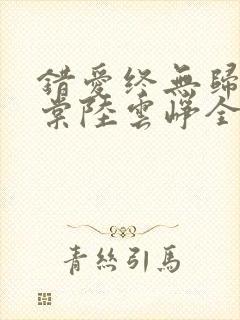 錯愛終無歸
棠陸雲崢全
青絲引馬